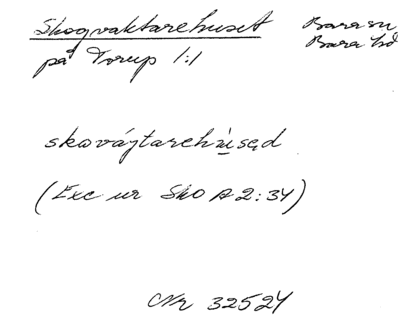 Skogvaktarehuset Bara sn
på Torup 1:1 Bara hd
skovájtarehùsęd
(Exc ur SkO A 2:34)
Nr 32524